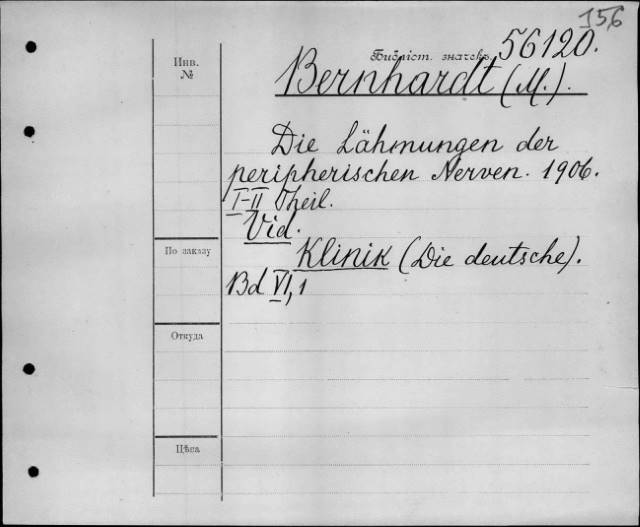 156
Библіот. значекъ 56120.
Инв.
№
Bernhardt (M.).
Die Lähmungen der
peripherischen Nerven. 1906.
I-II Theil.
Vid.
Klinik (Die deutsche).
Bd VI, 1
По заказу
Откуда
Цѣна